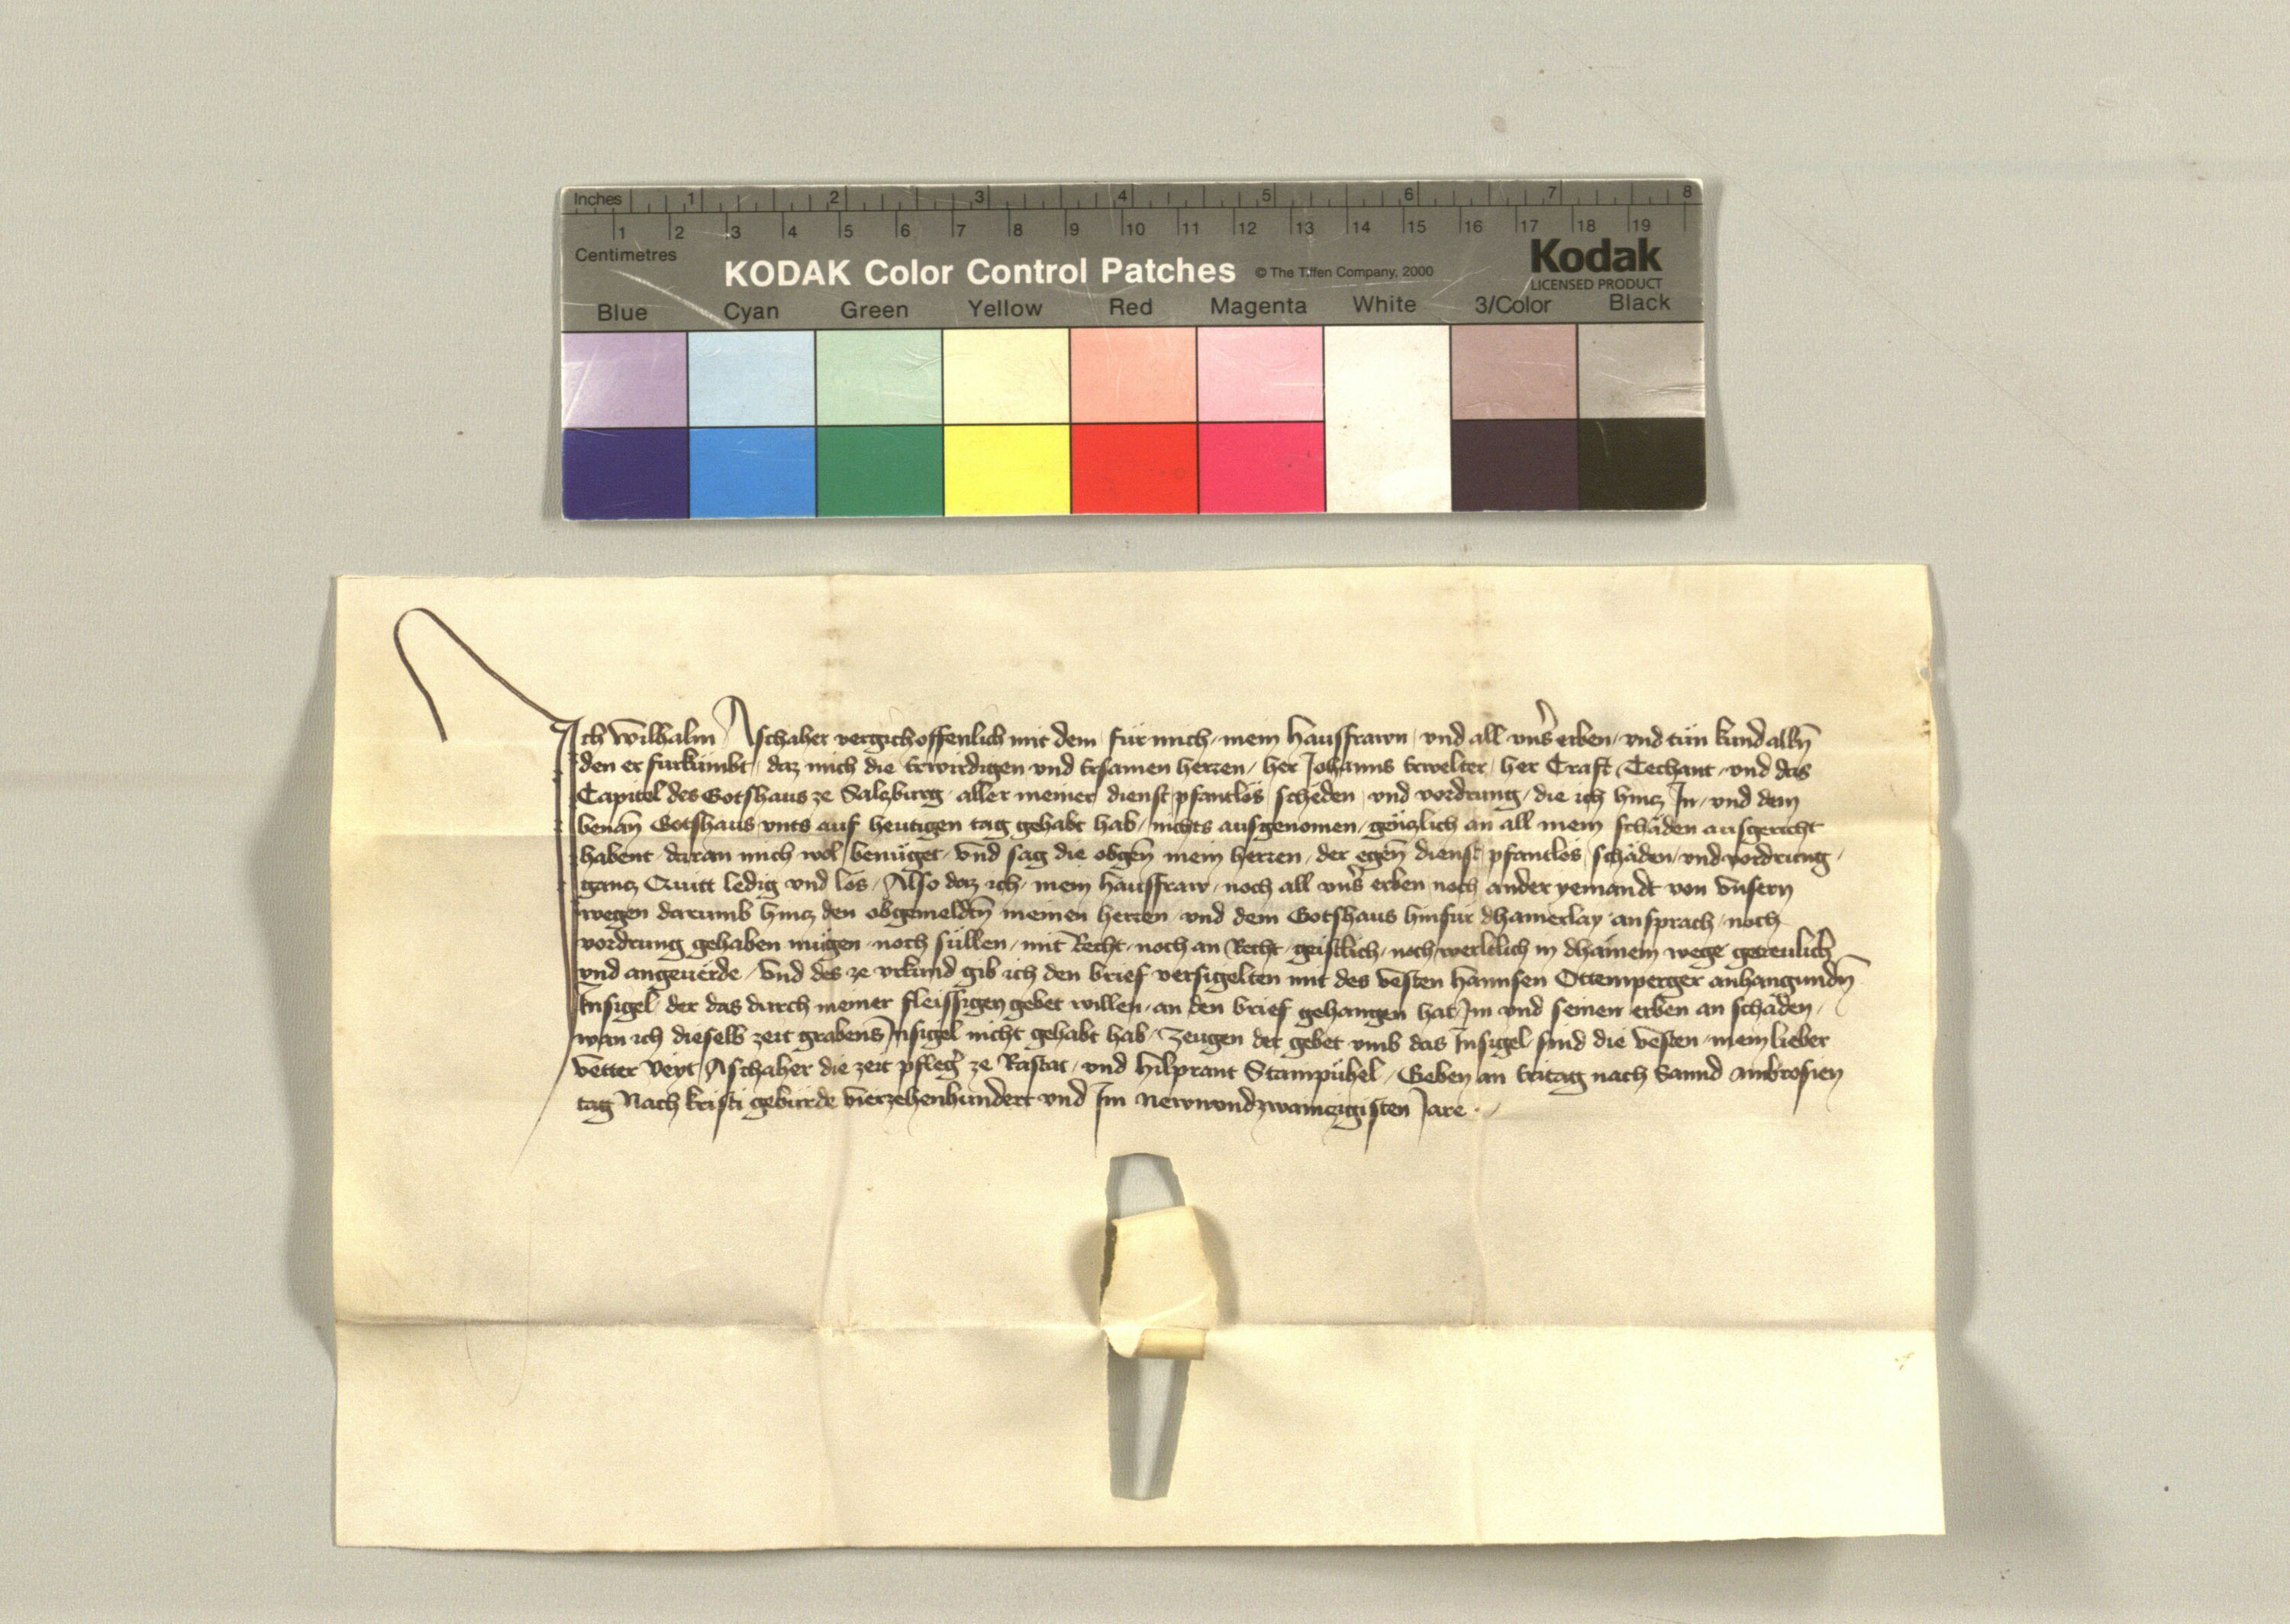 Inches 1 2 3 4 5 6 7 8
1 2 3 4 5 6 7 8 9 10 11 12 13 14 15 16 17 18 19
Centimetres
KODAK Color Control Patches © The Tiffen Company, 2000
Kodak
LICENSED PRODUCT
Blue Cyan Green Yellow Red Magenta White 3/Color Black
Ich Wilhalm Aschaher vergich offenlich mit dem / für mich / mein hausfrawn / vnd all vnser erben / vnd tün kund allen
den er fürkümbt / daz mich die Erwirdigen vnd Ersamen herren / her Johanns Erwelter / her Craft Techant / vnd das
Capitel des Gotshaus ze Salzburg / aller meiner dienst pfantlös scheden / vnd vordrung / die ich hincz In / vnd dem
benan Gotshaus vnts auf heutigen tag gehabt hab / nichts ausgenomen / gënzlich an all mein schäden ausgericht
habent / daran mich wol benüget / vnd sag die obgen mein herren / der egen dienst pfantlös schäden / vnd vordrung /
gancz Quitt ledig vnd lös / Also daz ich / mein hausfraw / noch all vnser erben noch ander yemandt von vnsern
wegen darumb hincz den obgemeldten meinen herren / vnd dem Gotshaus hinfür dhainerlay ansprach / noch
vordrung gehaben mügen / noch süllen / mit Recht / noch an Recht / geistlich / noch werltlich in dhainem wege getreulich
vnd angeuërde / Vnd des ze vrkund gib ich den brief versigelten mit des vesten hannsen Ottemperger anhangunden
Insigel / der das durch meiner fleissigen gebet willen / an den brief gehangen hat / Im vnd seinen erben an schäden /
wan ich dieselb zeit grabens Insigel nicht gehabt hab / Zeugen der gebet vmb das Insigel sind die vesten / mein lieber
vetter Veyt Aschaher die zeit pfleger ze Rastat / vnd hilprant Stampühel / Geben an Eritag nach Sannd Ambrosien
tag Nach kristi gebürde vierzehenhundert vnd Im Newnundzwainczigisten Jare